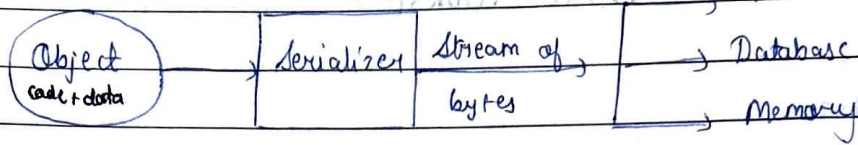 Object
code + data
Serializer
Stream of
bytes
Database
Memory